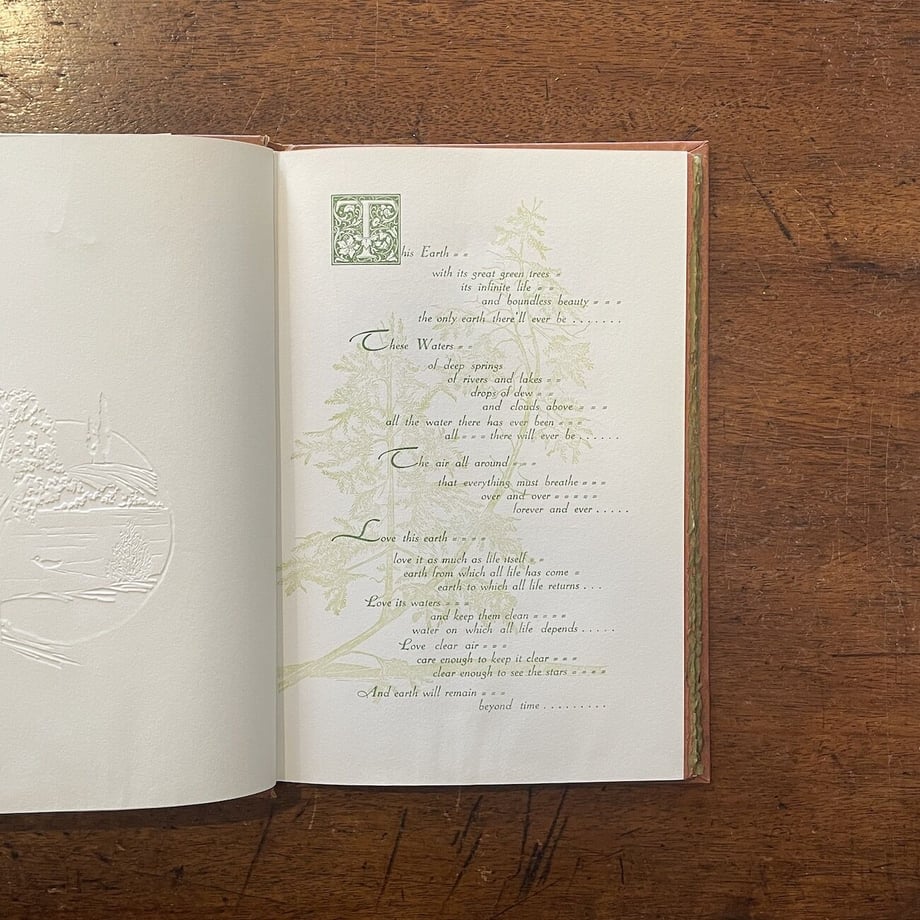 This Earth = =
with its great green trees =
its infinite life = =
and boundless beauty = = =
the only earth there'll ever be . . . . . . .
These Waters = =
of deep springs
of rivers and lakes = =
drops of dew = =
and clouds above = = =
all the water there has ever been = = =
all = = = there will ever be . . . . . .
The air all around = = =
that everything must breathe = = =
over and over = = = = =
forever and ever . . . . .
Love this earth = = = =
love it as much as life itself = =
earth from which all life has come =
earth to which all life returns . . .
Love its waters = = =
and keep them clean = = = =
water on which all life depends . . . . .
Love clear air = = =
care enough to keep it clear = = =
clear enough to see the stars = = = =
And earth will remain = = =
beyond time . . . . . . . . .